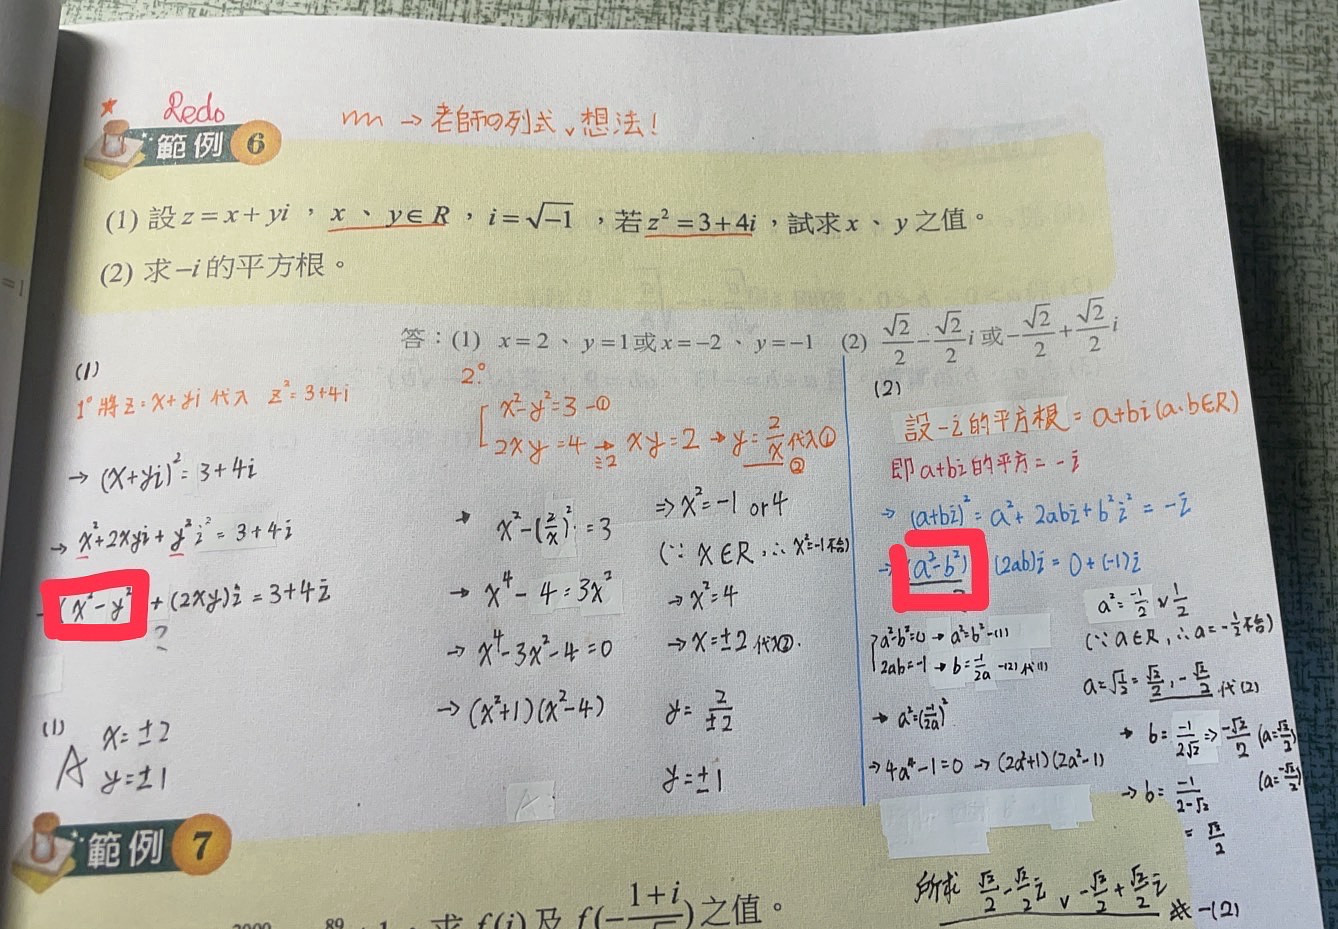 Redo
m → 老師の列式、想法!
範例 6
(1) 設 z = x + yi,x、y∈R,i = √-1,若 z² = 3 + 4i,試求 x、y 之值。
(2) 求 -i 的平方根。
答:(1) x = 2、y = 1 或 x = -2、y = -1 (2) √2/2 - √2/2 i 或 -√2/2 + √2/2 i
(1)
1° 將 z = x + yi 代入 z² = 3 + 4i
→ (x+yi)² = 3 + 4i
→ x² + 2xyi + y²i² = 3 + 4i
(x² - y²) + (2xy)i = 3 + 4i
?
(1)
A
x = ±2
y = ±1
2°
x² - y² = 3 - ①
2xy = 4 → ÷2 xy = 2 → y = 2/x 代入①
②
→ x² - (2/x)² = 3
→ x⁴ - 4 = 3x²
→ x⁴ - 3x² - 4 = 0
→ (x²+1)(x²-4)
⇒ x² = -1 or 4
(∵ x∈R, ∴ x² = -1 不合)
→ x² = 4
→ x = ±2 代入②.
y = 2/±2
y = ±1
(2)
設 -i 的平方根 = a+bi (a.b∈R)
即 a+bi 的平方 = -i
→ (a+bi)² = a² + 2abi + b²i² = -i
→ (a² - b²) (2ab)i = 0 + (-1)i
a² - b² = 0 → a² = b² -(1)
2ab = -1 → b = -1/2a -(2) 代(1)
→ a² = (-1/2a)²
→ 4a⁴ - 1 = 0 → (2a²+1)(2a²-1)
a² = -1/2 ∨ 1/2
(∵ a∈R, ∴ a = -1/2 不合)
a = √1/2 = √2/2, -√2/2 代(2)
→ b = -1/2√2 ⇒ -√2/2 (a = √2/2)
(a = -√2/2)
→ b = -1/2-√2
= √2/2
所求 √2/2 - √2/2 i ∨ -√2/2 + √2/2 i # -(2)
範例 7
求 f(i) 及 f(-
1+i
) 之值。